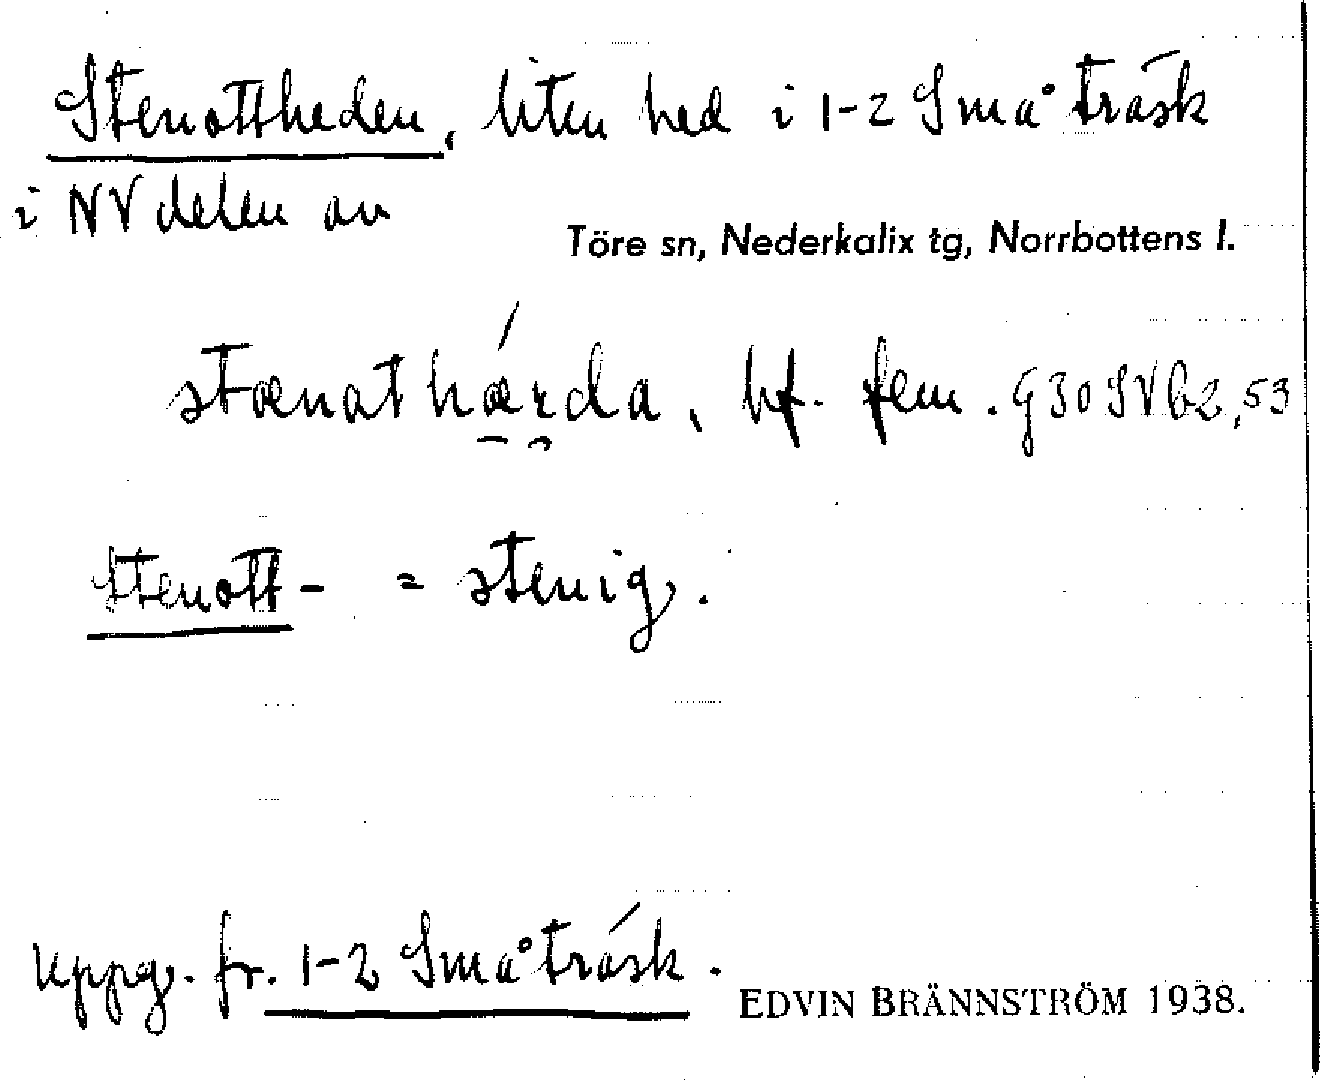 Stenottheden, liten hed i 1-2 Småträsk
i NV delen av
Töre sn, Nederkalix tg, Norrbottens l.
stænathærda, bf. fem. G30SVb2,53
Stenott- = stenig.
Uppg. fr. 1-2 Småträsk.
EDVIN BRÄNNSTRÖM 1938.